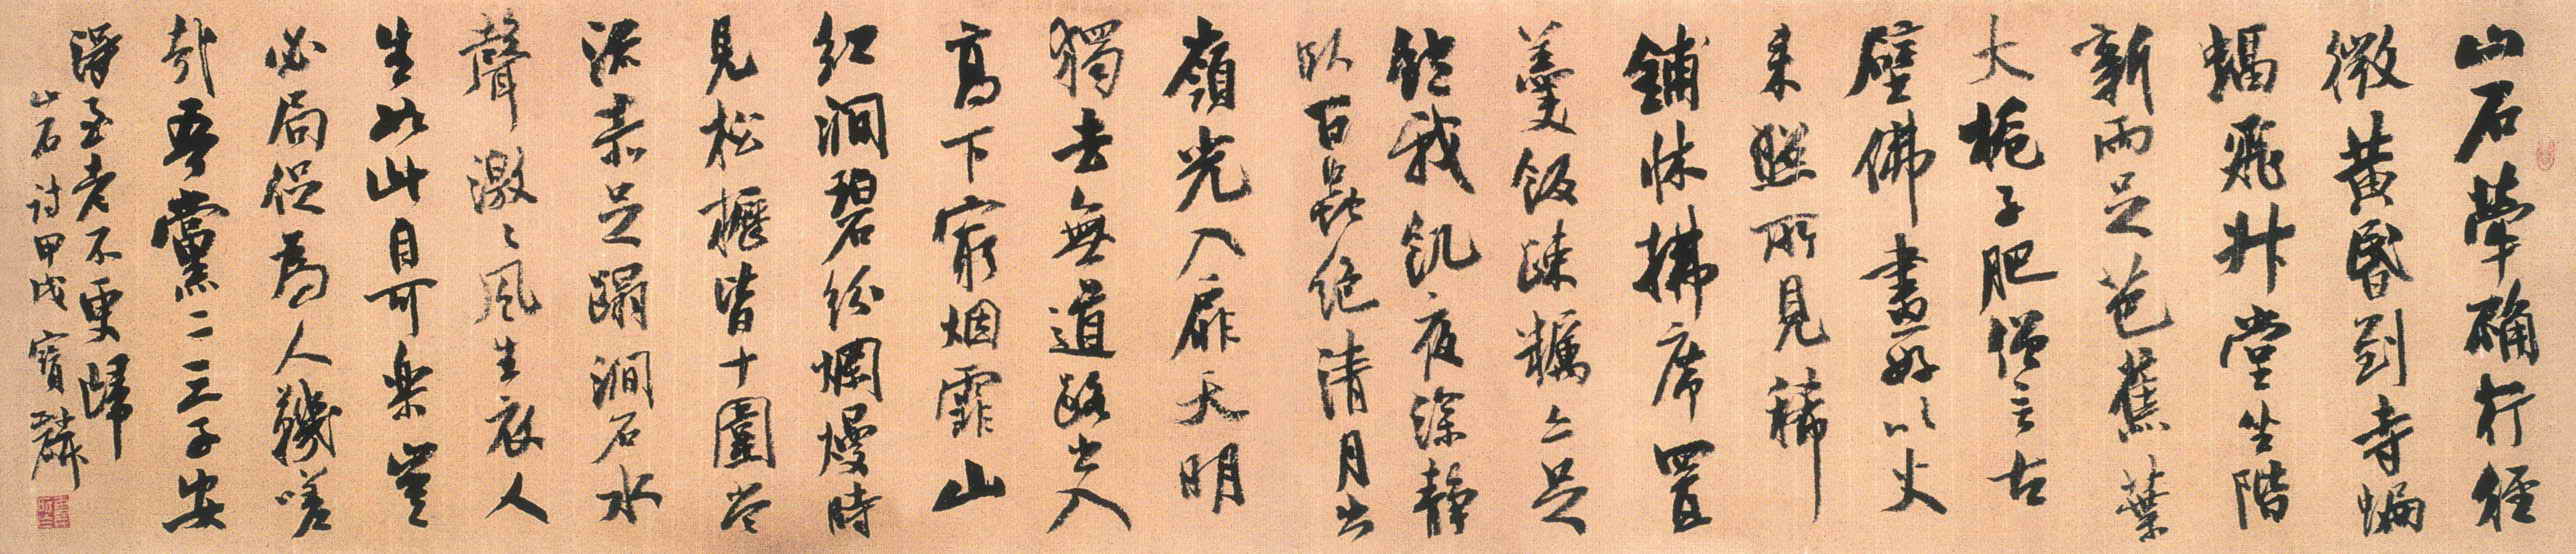 山石犖确行徑
微黄昏到寺蝙
蝠飛升堂坐階
新雨足芭蕉葉
大梔子肥僧言古
壁佛畫好以火
來照所見稀
鋪床拂席置
羹飯疎糲亦足
飽我飢夜深靜
卧百蟲絶清月出
嶺光入扉天明
獨去無道路出入
高下窮烟霏山
紅澗碧紛爛熳時
見松櫪皆十圍當
流赤足蹋澗石水
聲激々風生衣人
生如此自可樂豈
必局促為人鞿嗟
哉吾黨二三子安
得至老不更歸
山石詩甲戌寶麟